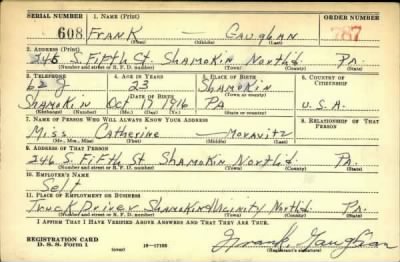 SERIAL NUMBER 1. NAME (Print) ORDER NUMBER
608 FRANK — Gaughan 787
(First) (Middle) (Last)
2. ADDRESS (Print)
246 S. Fifth St. Shamokin North'd. Pa.
(Number and street or R. F. D. number) (Town) (County) (State)
3. TELEPHONE 4. AGE IN YEARS 5. PLACE OF BIRTH 6. COUNTRY OF CITIZENSHIP
62 J 23 Shamokin
DATE OF BIRTH (Town or county)
Shamokin Oct 17 1916 PA U.S.A.
(Exchange) (Number) (Mo.) (Day) (Yr.) (State or country)
7. NAME OF PERSON WHO WILL ALWAYS KNOW YOUR ADDRESS 8. RELATIONSHIP OF THAT PERSON
Miss Catherine — Moravitz
(Mr., Mrs., Miss) (First) (Middle) (Last)
9. ADDRESS OF THAT PERSON
246 S. Fifth St Shamokin North'd. Pa.
(Number and street or R. F. D. number) (Town) (County) (State)
10. EMPLOYER'S NAME
Self
11. PLACE OF EMPLOYMENT OR BUSINESS
Truck Driver Shamokin Vicinity North'd. Pa.
(Number and street or R. F. D. number) (Town) (County) (State)
I AFFIRM THAT I HAVE VERIFIED ABOVE ANSWERS AND THAT THEY ARE TRUE.
REGISTRATION CARD
D. S. S. Form 1 16—17105 Frank Gaughan
(over) (Registrant's signature)